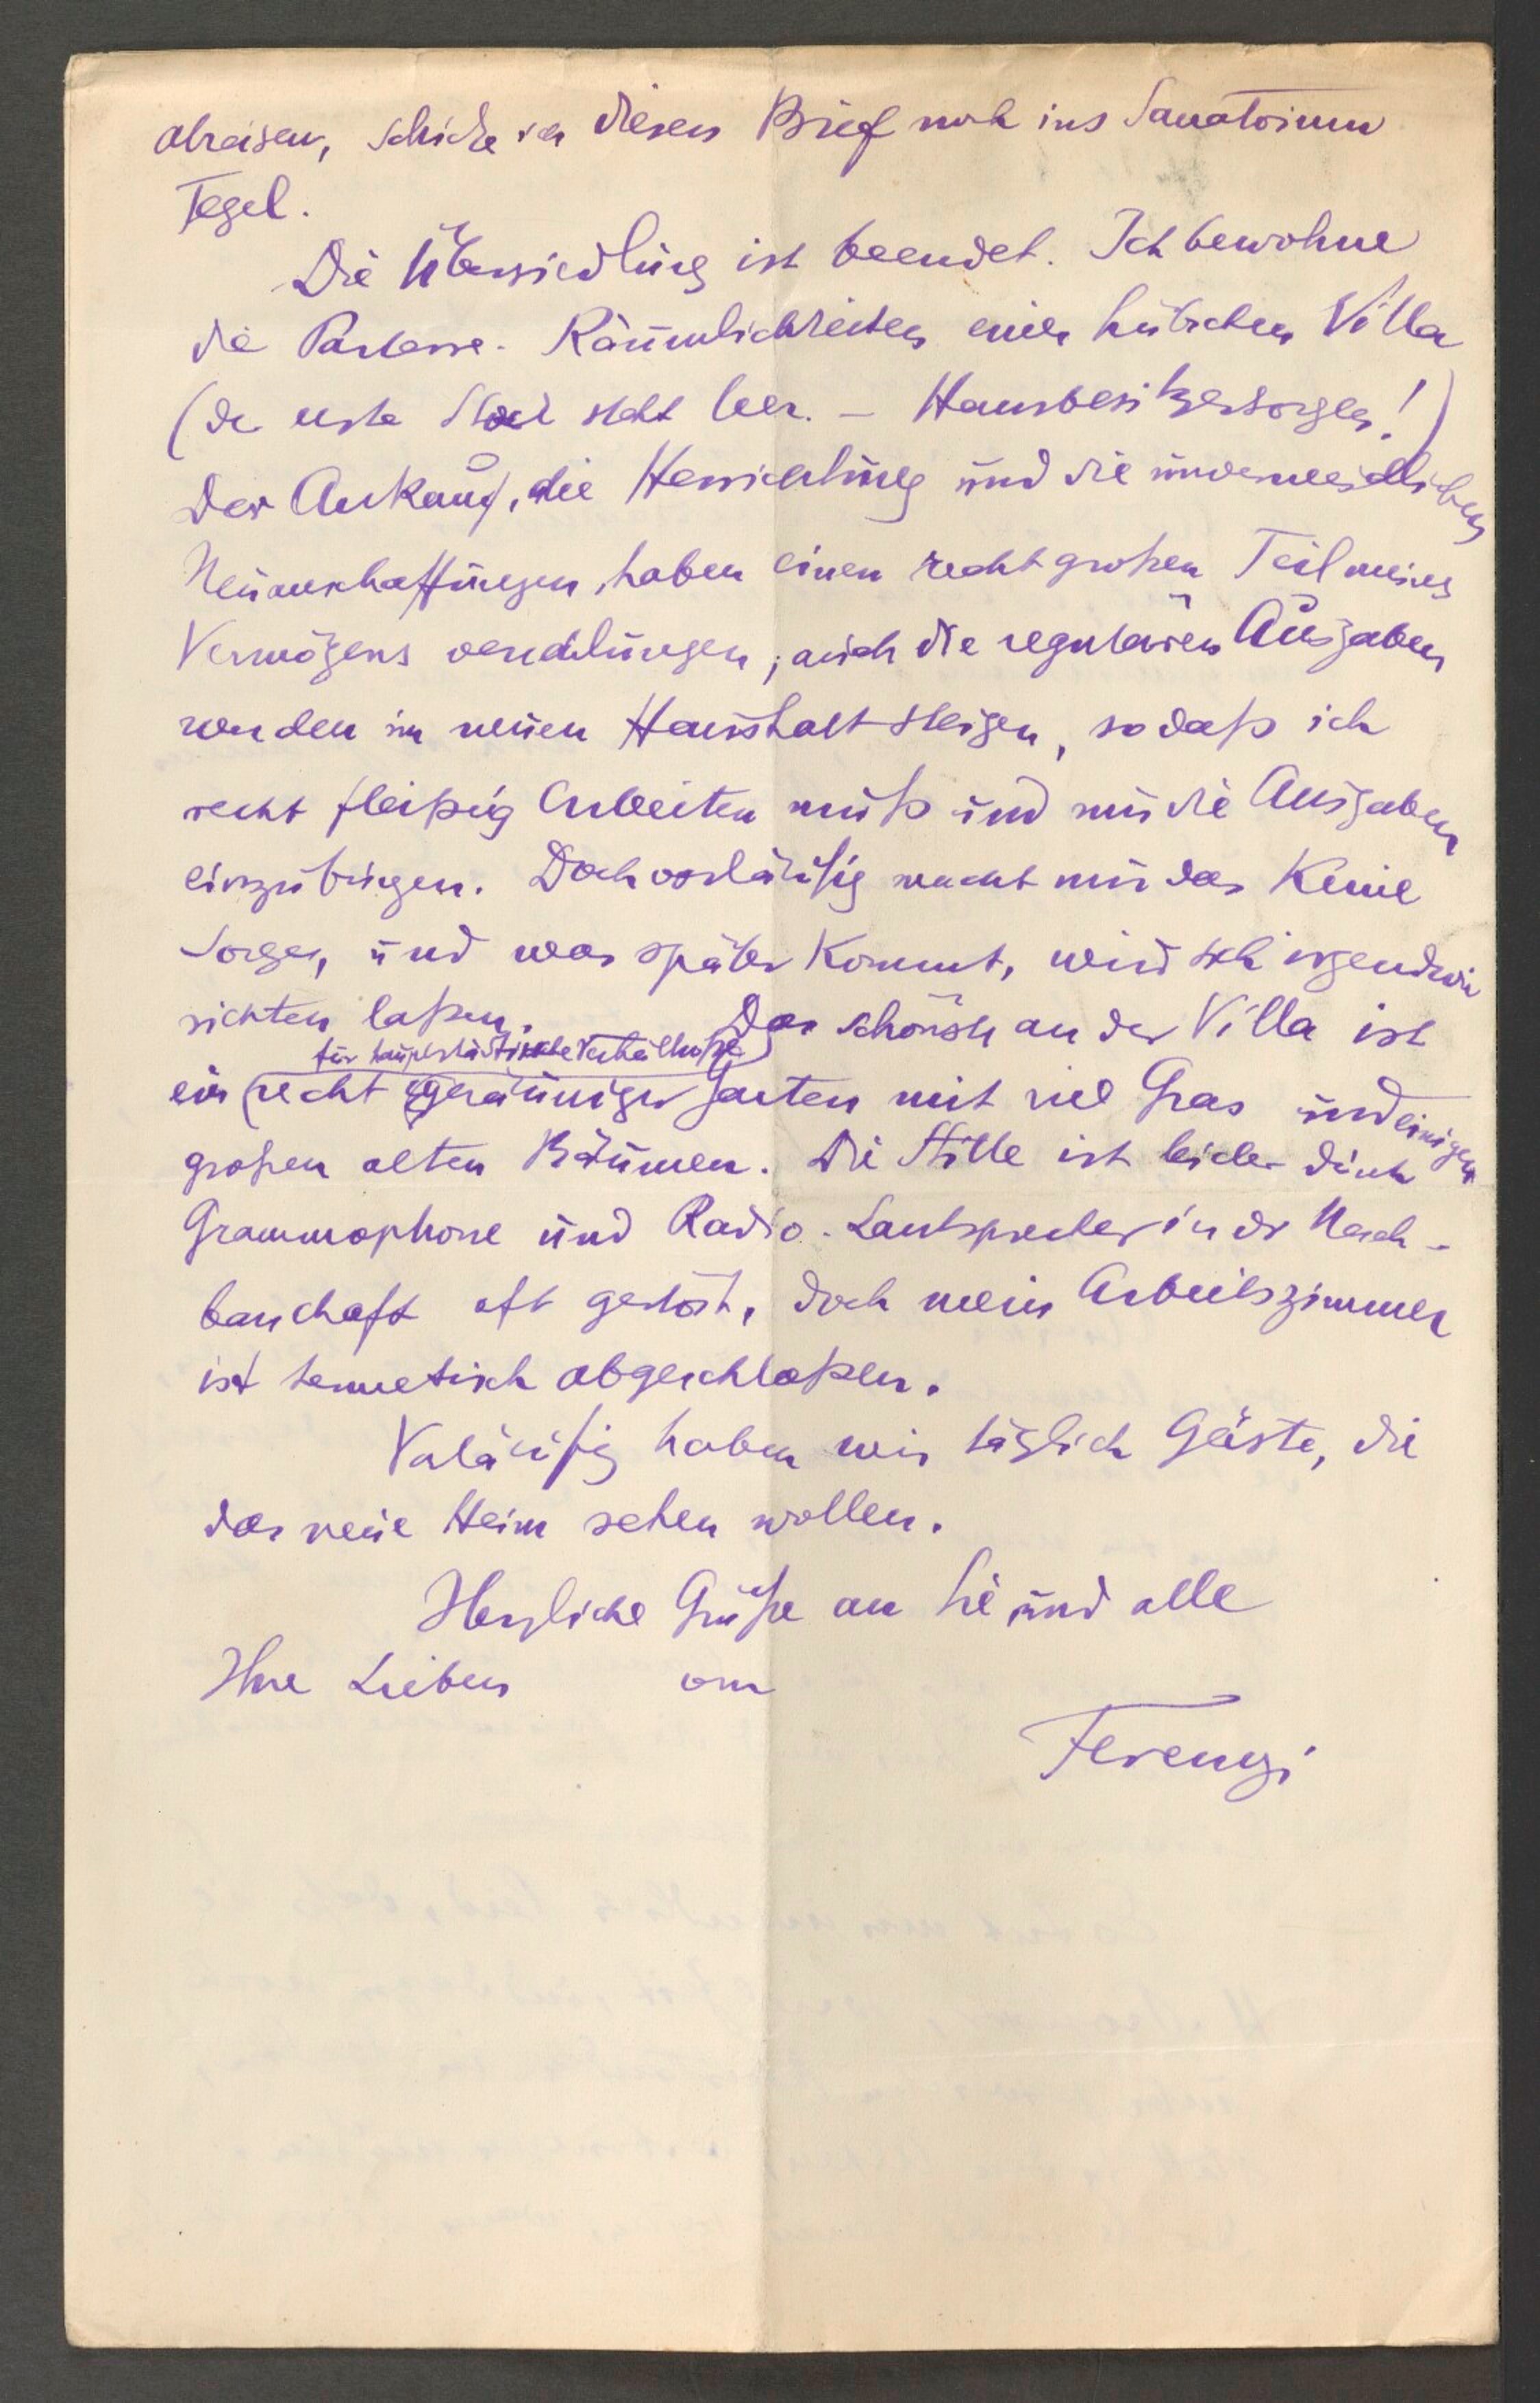 abreisen, schicke ich diesen Brief noch ins Sanatorium
Tegel.
Die Übersiedlung ist beendet. Ich bewohne
die Parterre-Räumlichkeiten einer hübschen Villa
(der erste Stock steht leer. – Hausbesitzersorgen!)
Der Ankauf, die Herrichtung und die unvermeidlichen
Neuanschaffungen, haben einen recht großen Teil meines
Vermögens verschlungen; auch die regulären Ausgaben
werden im neuen Haushalt steigen, sodaß ich
recht fleißig arbeiten muß und nur die Ausgaben
einzubringen. Doch vorläufig macht mir das keine
Sorgen, und was später kommt, wird sich irgendwie
richten laßen. Das schönste an der Villa ist
für hauptstädtische Verhältniße
ein recht geräumiger Garten mit viel Gras und einigen
großen alten Bäumen. Die Stille ist leider durch
Grammophone und Radio-Lautsprecher in der Nach-
barschaft oft gestört, doch mein Arbeitszimmer
ist hermetisch abgeschloßen.
Vorläufig haben wir täglich Gäste, die
das neue Heim sehen wollen.
Herzliche Grüße an Sie und alle
Ihre Lieben von
Ferenczi